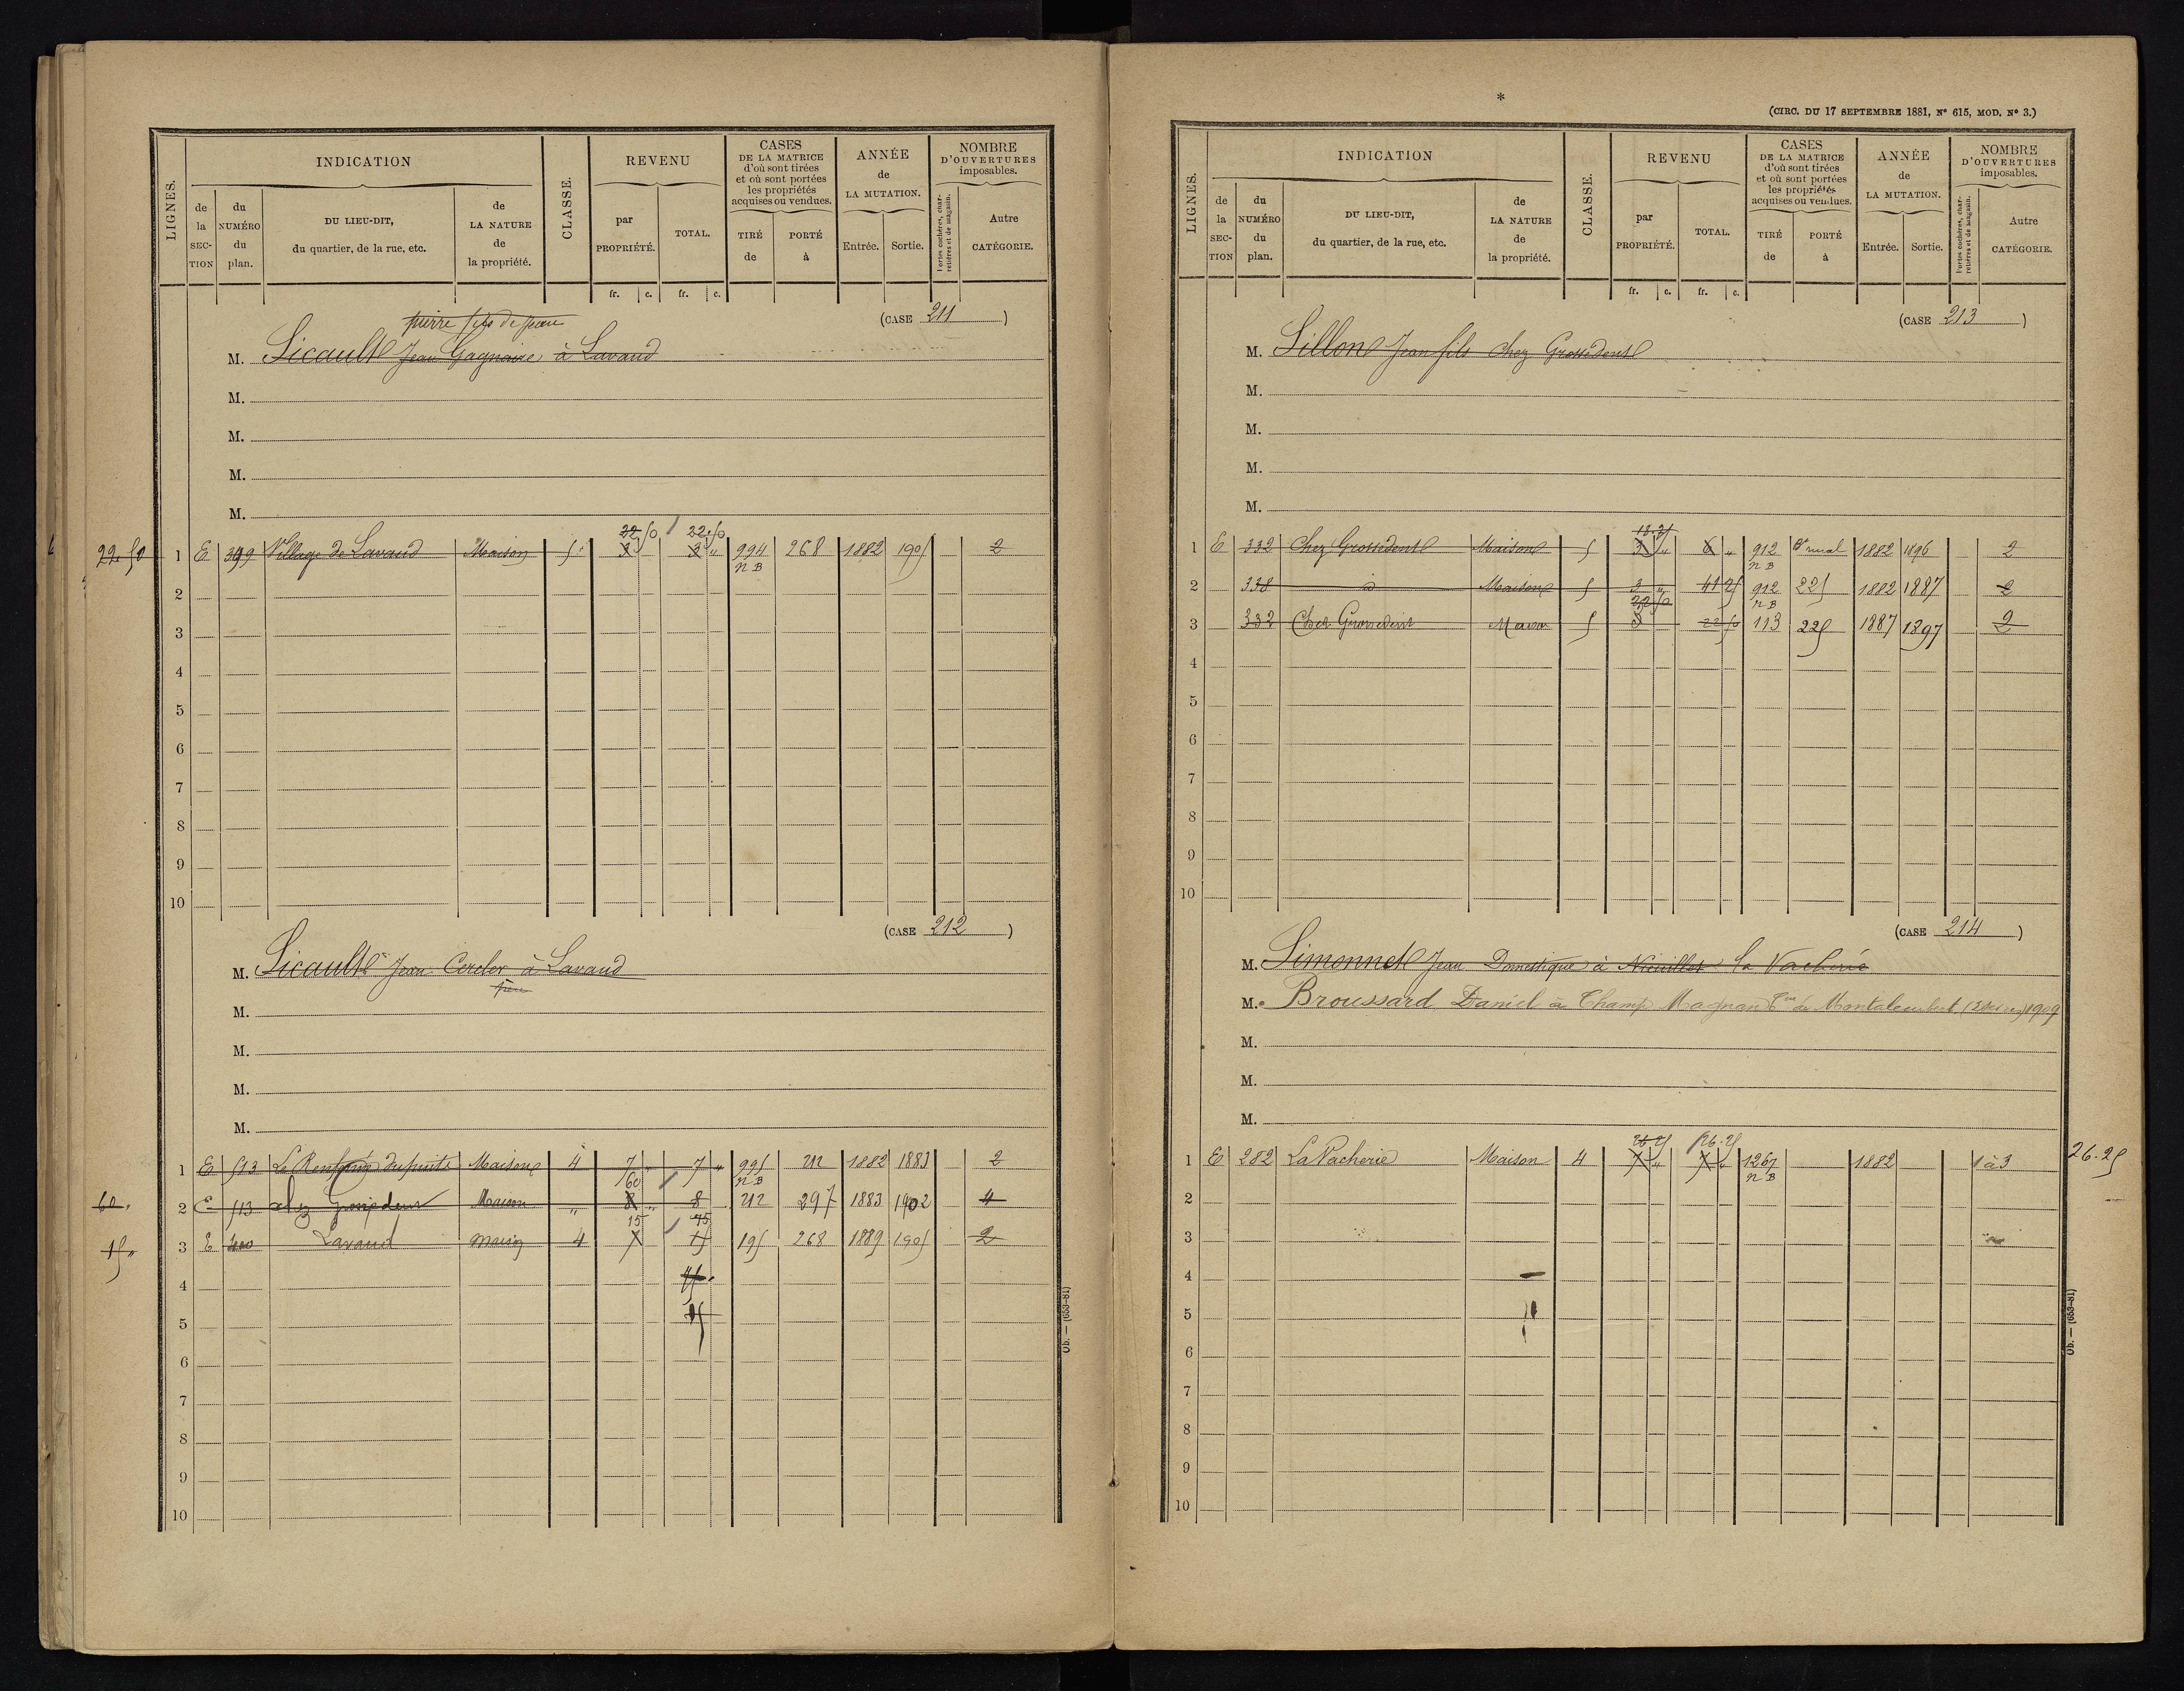 LIGNES.
INDICATION
CLASSE.
REVENU
CASES
DE LA MATRICE
d'où sont tirées
et où sont portées
les propriétés
acquises ou vendues.
ANNÉE
de
LA MUTATION.
NOMBRE
D'OUVERTURES
imposables.
de la SECTION
du NUMÉRO du plan.
DU LIEU-DIT,
du quartier, de la rue, etc.
de LA NATURE de la propriété.
par PROPRIÉTÉ.
TOTAL.
TIRÉ de
PORTÉ à
Entrée.
Sortie.
Portes cochères, charretières et de magasin.
Autre CATÉGORIE.
fr. c. fr. c.
(CASE 211)
pierre fils de
M. Sicault Jean Gagnaire à Lavaud
M.
M.
M.
M.
22.50 22.50
22.50 1 E 399 Village de Lavaud Maison 5 3 3 " 994 268 1882 1905 2
NB
2
3
4
5
6
7
8
9
10
(CASE 212)
M. Sicault Jean Cercler à Lavaud
père
M.
M.
M.
M.
1 E 513 Le Renfermé du puits Maison 4 7 " 7 " 995 212 1882 1883 2
60 NB
60 " 2 E 513 chez Maison " 8 " 8 212 297 1883 1902 4
15 75
15 " 3 E 400 Lavaud Maison 4 7 15 195 268 1889 1905 2
4
5 15
6
7
8
9
10
Ob. — (653-81)
*
(CIRC. DU 17 SEPTEMBRE 1881, N° 615, MOD. N° 3.)
LIGNES.
INDICATION
CLASSE.
REVENU
CASES
DE LA MATRICE
d'où sont tirées
et où sont portées
les propriétés
acquises ou vendues.
ANNÉE
de
LA MUTATION.
NOMBRE
D'OUVERTURES
imposables.
de la SECTION
du NUMÉRO du plan.
DU LIEU-DIT,
du quartier, de la rue, etc.
de LA NATURE de la propriété.
par PROPRIÉTÉ.
TOTAL.
TIRÉ de
PORTÉ à
Entrée.
Sortie.
Portes cochères, charretières et de magasin.
Autre CATÉGORIE.
fr. c. fr. c.
(CASE 213)
M. Sillon Jean fils Chez Grossedent
M.
M.
M.
M.
1 E 332 Chez Grossedent Maison 5 3 " 6 " 912 rural 1882 1896 2
NB
2 338 d Maison 5 3 " 41 25 912 225 1882 1887 2
22 50 NB
3 332 Chez Grossedent Maison 5 3 22 50 113 225 1887 1897 2
4
5
6
7
8
9
10
(CASE 214)
M. Simonnet Jean Domestique à Nieuillet la Vacherie
M. Broussard Daniel à Champ Magnan Cne de Montalembert (2 Sèvres) 1909
M.
M.
M.
26.25 26.25
1 E 282 La Vacherie Maison 4 7 " 7 " 1267 1882 1 à 3 26.25
NB
2
3
4
5
6
7
8
9
10
Ob. — (653-81)